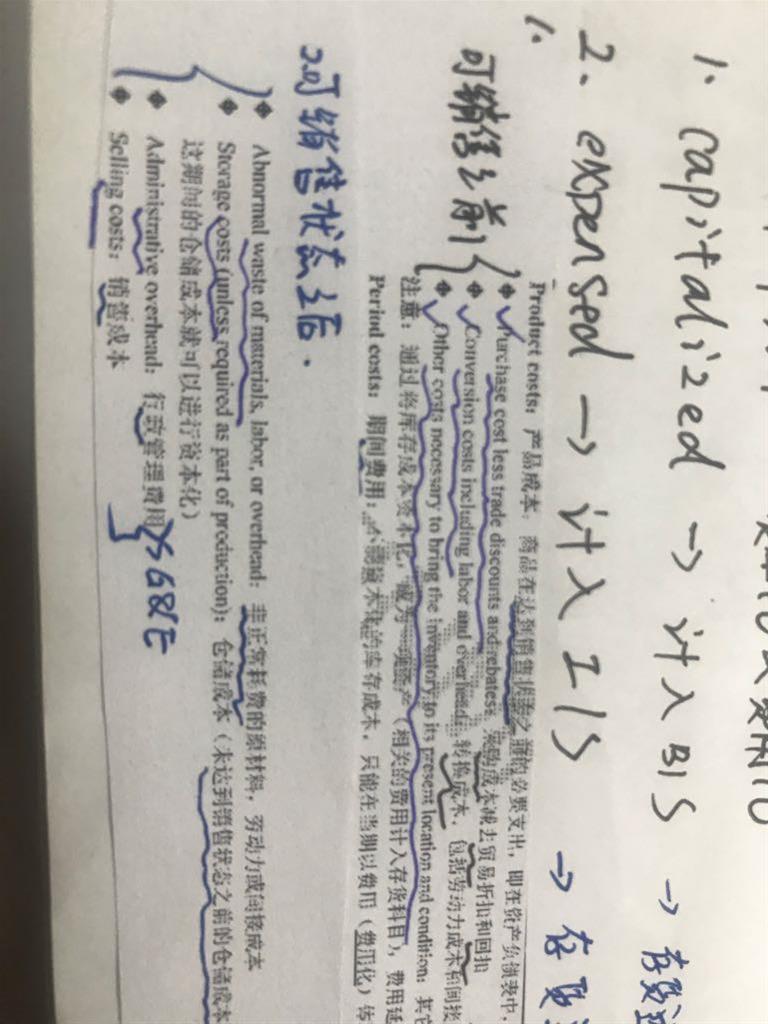 1. capitalized → 计入 B/S → 存货
2. expensed → 计入 I/S → 存货
1.
可销售之前
Product costs：产品成本，商品在达到销售状态之前的必要支出，即在资产负债表中，
◆ Purchase cost less trade discounts and rebates：采购成本减去贸易折扣和回扣
◆ Conversion costs including labor and overhead：转换成本，包括劳动力成本和间接
◆ Other costs necessary to bring the inventory to its present location and condition：其它
注意：通过将库存成本资本化，成为一项资产（相关的费用计入存货科目），费用延
Period costs：期间费用：不能资本化的库存成本，只能在当期以费用（费用化）
2.可销售状态之后.
◆ Abnormal waste of materials, labor, or overhead：非正常耗费的原材料，劳动力或间接成本
◆ Storage costs (unless required as part of production)：仓储成本（未达到销售状态之前的仓储成本
这期间的仓储成本就可以进行资本化）
◆ Administrative overhead：行政管理费用
SG&E
◆ Selling costs：销售成本